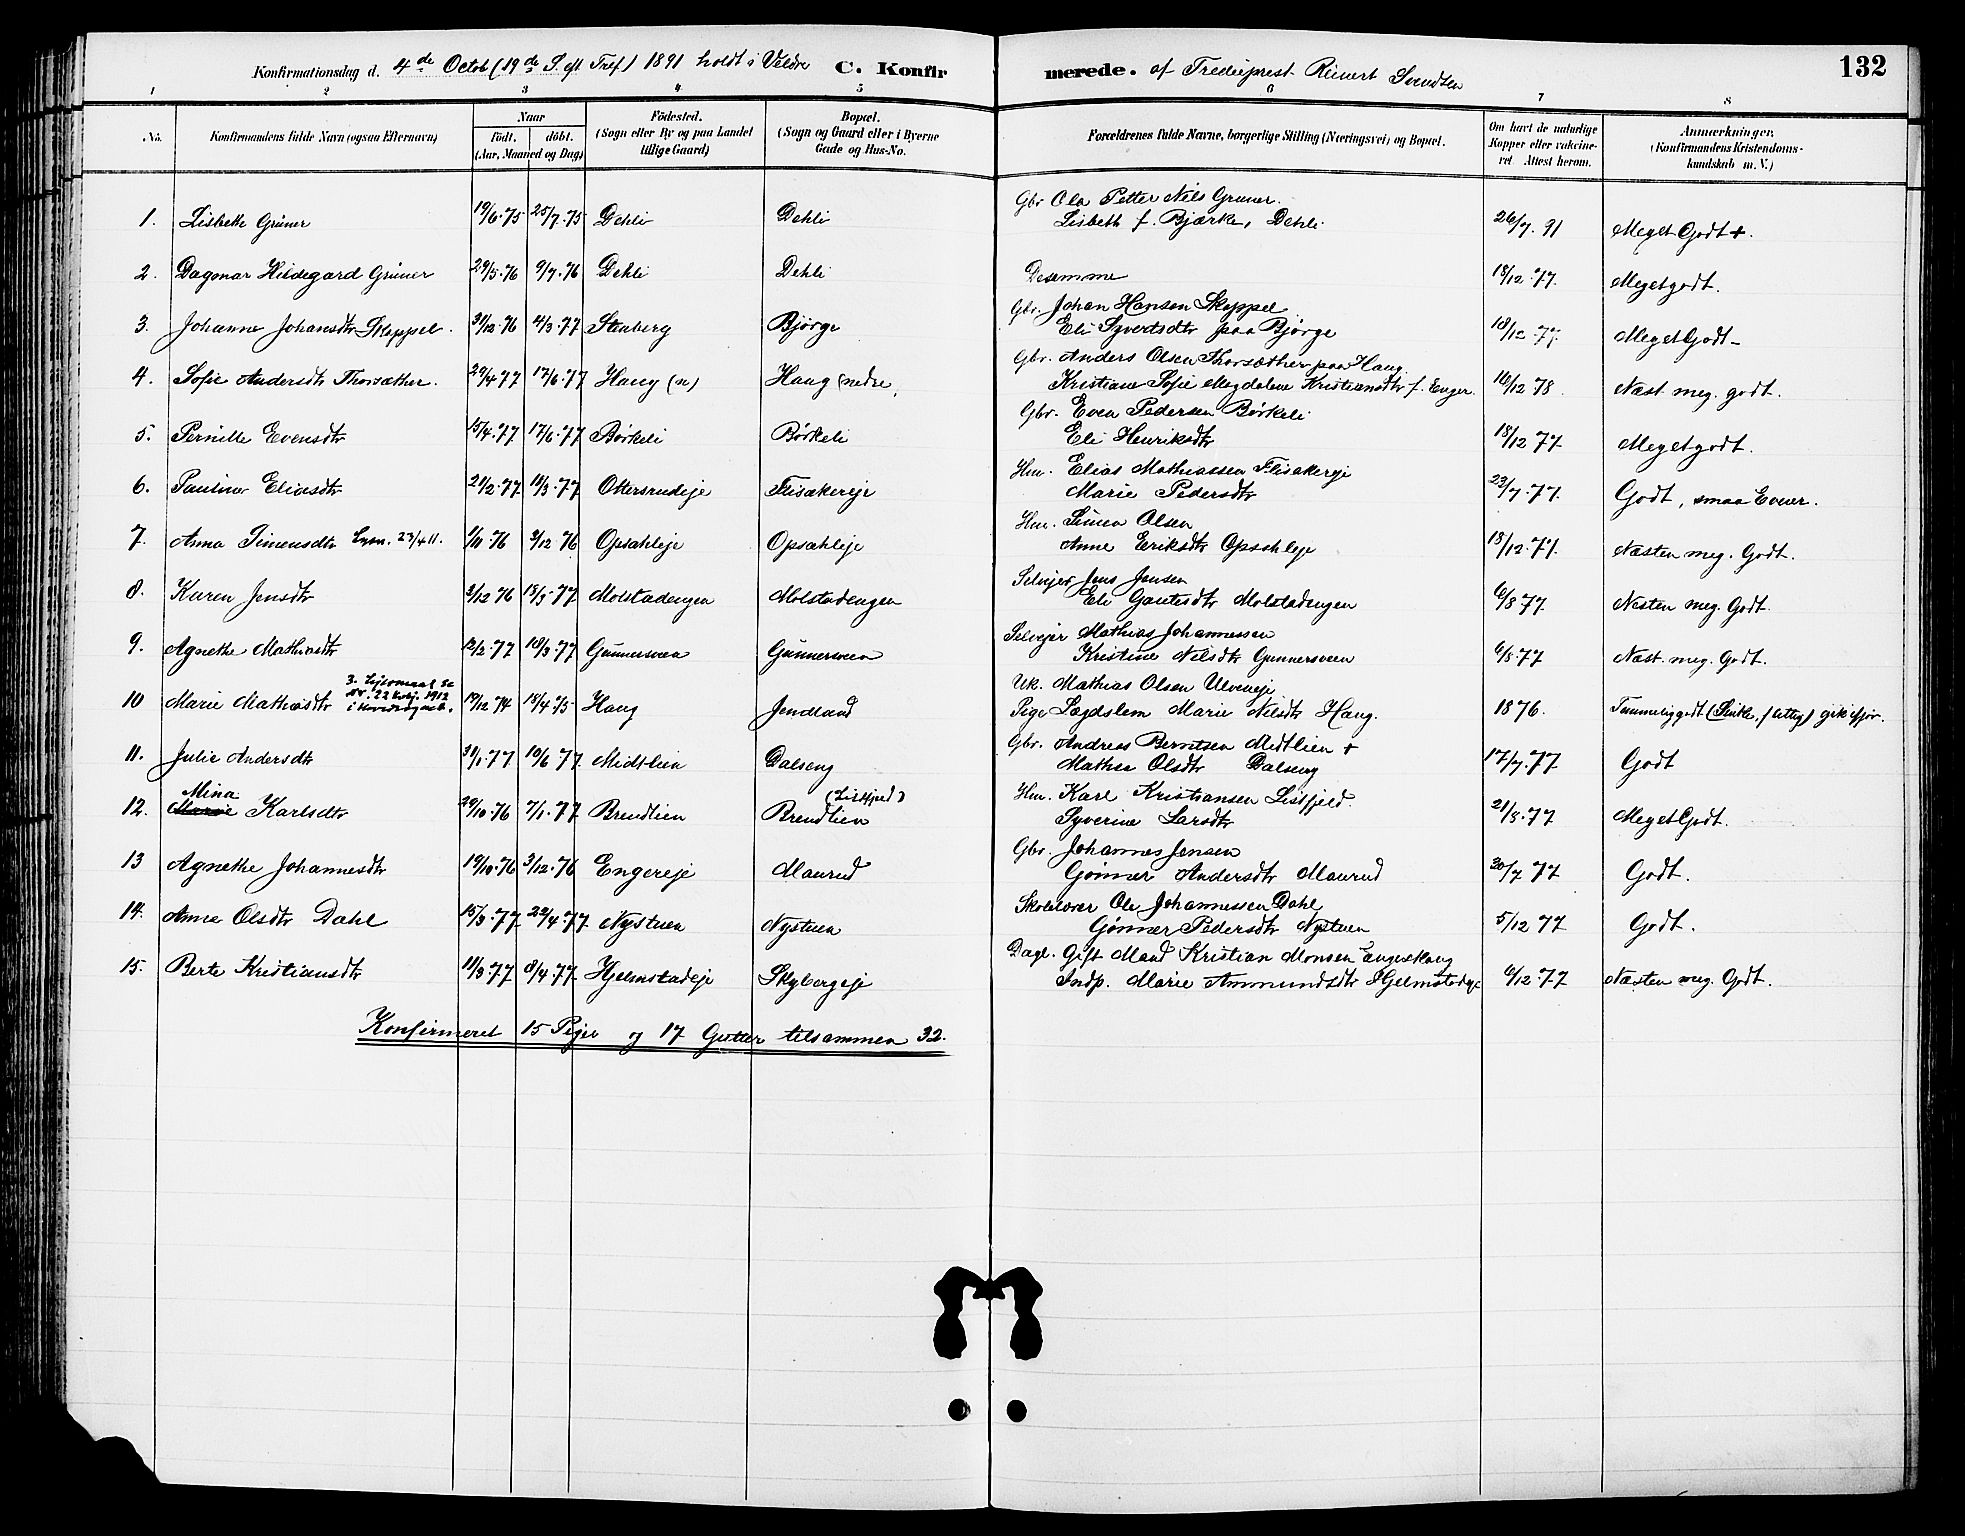 132
Konfirmationsdag d. 4de Octob (19de S. eft Tref) 1891 holdt i Veldre C. Konfirmerede. af Trediepræst Reinert Svendsen
1 2 3 4 5 6 7 8
No. Konfirmandens fulde Navn (ogsaa Efternavn) Naar födt. döbt. (Aar, Maaned og Dag) Födested. (Sogn eller By og paa Landet tillige Gaard) Bopæl. (Sogn og Gaard eller i Byerne Gade og Hus-No. Forældrenes fulde Navne, borgerlige Stilling (Næringsvei) og Bopæl. Om havt de naturlige Kopper eller vakcineret Attest herom. Anmærkninger. (Konfirmandens Kristendomskundskab m. V.)
1. Lisbeth Grüner 19/6.75 25/7.75 Dehli Dehli Gbr. Ola Petter Nils Gruner. Lisbeth f. Bjærke, Dehli 26/7. 91 Meget Godt +.
2. Dagmar Hildegard Grüner 29/5.76 9/7.76 Dehli Dehli Desamme 18/12.77. Megetgodt.
3. Johanne Johansdtr Skeppel. 31/12.76 4/3.77 Stenberg Bjørge Gbr. Johan Hansen Skeppel Eli Syvertsdtr paa Bjørge 18/12.77. MegetGodt
4. Sofie Andersdtr Thorsæther. 29/4.77 17/6.77 Haug (n) Haug (nedre, Gbr. Anders Olsen Thorsæther paa Haug. Kristiane Sofie Magdalene Kristiansdtr f. Enger. 16/12 78. Næst. meg. godt.
5. Pernille Evensdtr 15/4.77 17/6.77 Børkeli Børkeli Gbr. Even Pedersen Børkeli Eli Henriksdtr 18/12 77 Megetgodt.
6. Pauline Eliasdtr 21/2.77 11/3.77 Ottersrudeje Flisakereje Hm. Elias Mathiassen Flisakereje Marie Pedersdtr 23/7.77. Godt, smaa Evner.
7. Anna Simensdtr Lysn. 23/4 11. 1/11.76 3/12 76 Opsahleje Opsahleje Hm. Simen Olsen Anne Eriksdtr Opsahleje 18/12.77. Næsten meg. Godt.
8. Karen Jensdtr 2/12 76 13/5.77 Molstadengen Molstadengen Selvejer Jens Jensen Eli Gautesdtr Molstadengen 6/8 77 Næsten meg. Godt.
9. Agnethe Mathiasdtr 12/2.77 18/3.77 Gunnersveen Gunnersveen Selvejer Mathias Johannessen Kristine Nilsdtr Gunnersveen 6/8 77 Næst. meg. Godt.
10 Marie Mathiasdtr 19/12 74 18/4 75 Haug Jendland Uk. Mathias Olsen Ulveneje Pige Marie Nilsdtr Haug. 1876. Temmeliggodt
11. Julie Andersdtr 31/1.77 10/6 77 Midtlien Dalseng Gbr. Andreas Berntsen Midtlien + Mathea Olsdtr Dalseng 17/7.77 Godt
12. Mina Karlsdtr 29/10.76 7/1.77 Brendlien Brendlien (Listfjeld) Hm. Karl Kristiansen Listfjeld. Syverine Larsdtr 21/8.77 MegetGodt.
13 Agnethe Johannesdtr 19/10.76 3/12.76 Engereje Maurud Gbr. Johannes Jensen Gønner Andersdtr Maurud 30/7 77 Godt.
14. Anne Olsdtr Dahl 15/3.77 22/4.77 Nystuen Nystuen Skolelærer Ole Johannessen Dahl Gønner Pedersdtr Nystuen 5/12 77 Godt.
15. Berte Kristiansdtr 11/3.77 8/4.77 Hjelmstadeje Skybergeje Dagl. Gift Mand Kristian Monsen Engeshaug Indp. Marie Ammundsdtr Hjelmstadeje 6/12 77 Næsten meg. Godt.
Konfirmeret 15 Piger og 17 Gutter tilsammen 32.